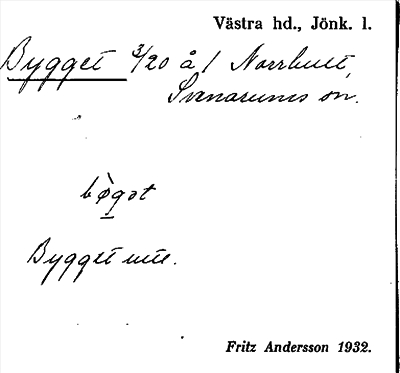 Västra hd., Jönk. l.
Bygget 3/20 å 1 Norrhult,
Svenarums sn.
bø̀gət
Bygget uute.
Fritz Andersson 1932.